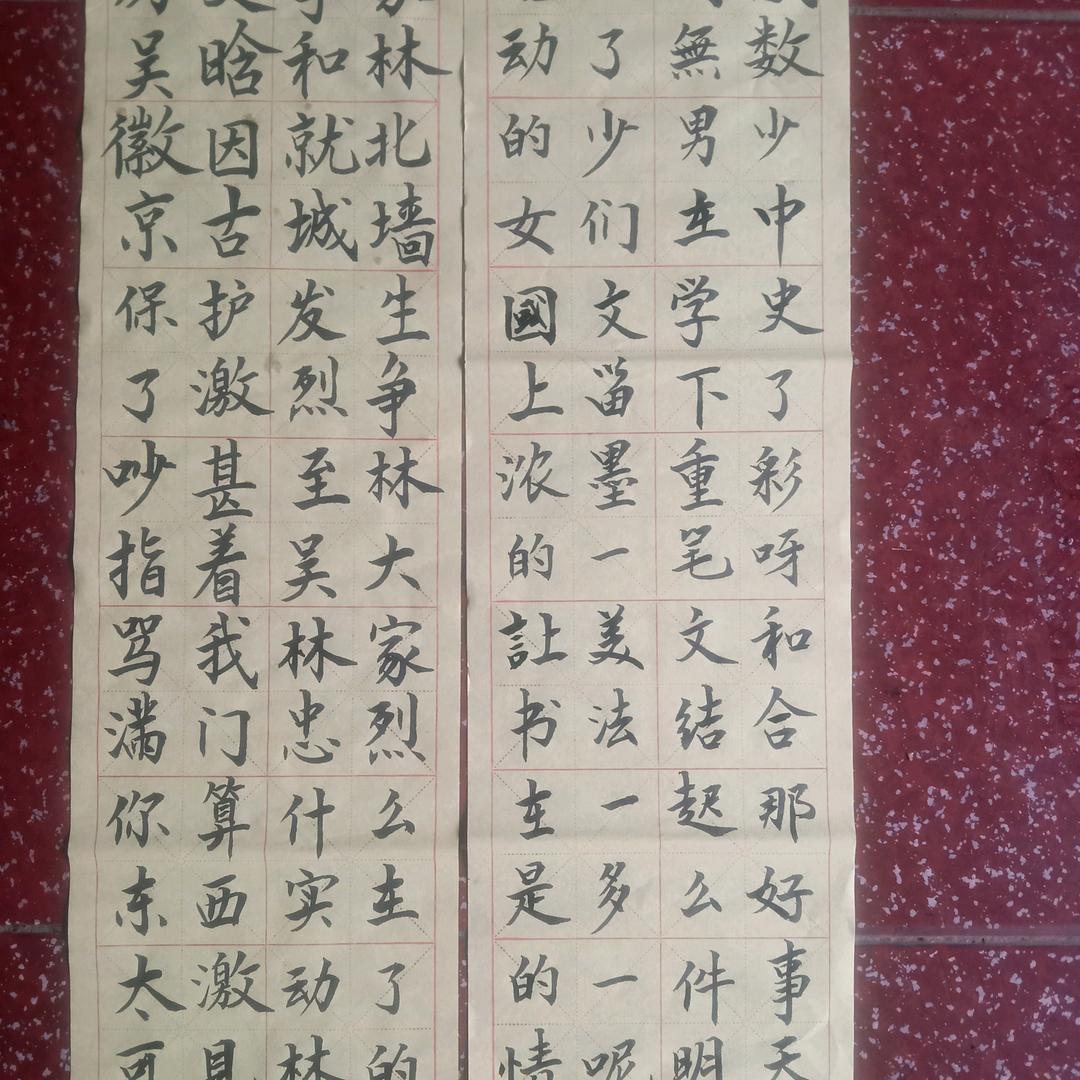 吴晗和林
徽因就北
京古城墙
保护发生
了激烈争
吵甚至林
指着吴大
骂我林家
满门忠烈
你算什么
东西实在
太激动了
可見林的
动了無数
的少男少
女们在中
國文学史
上留下了
浓墨重彩
的一笔呀
让美文和
书法结合
在一起那
是多么好
的一件事
情呢明天